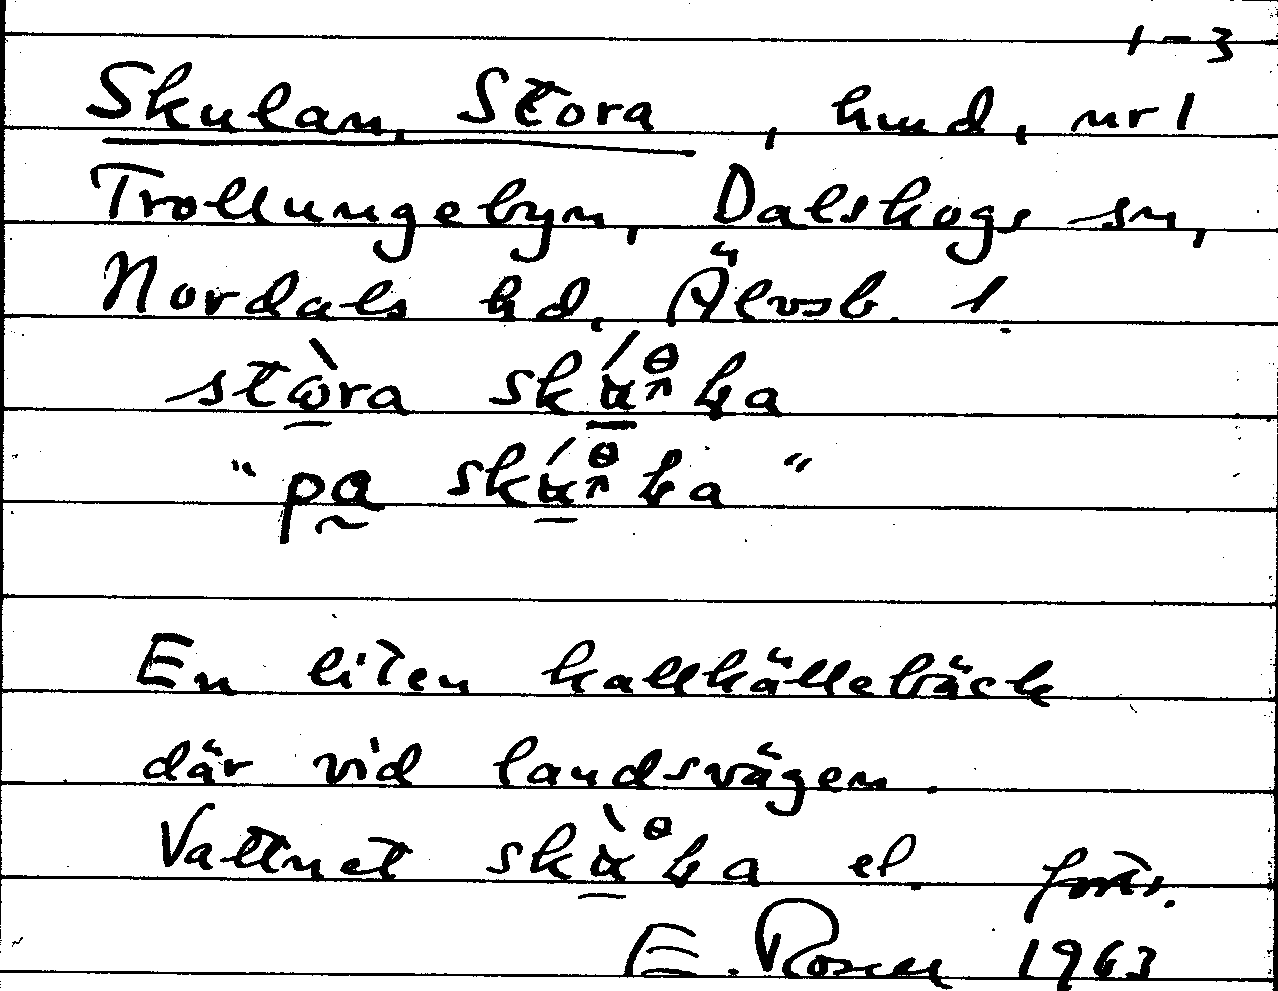 1-3
Skulan, Stora, hmd, nr 1
Trollungebyn, Dalskogs sn,
Nordals hd, Älvsb. l.
stòra
"pa
En liten kallkällebäck
där vid landsvägen.
Vattnet el.
E. Rosen 1963